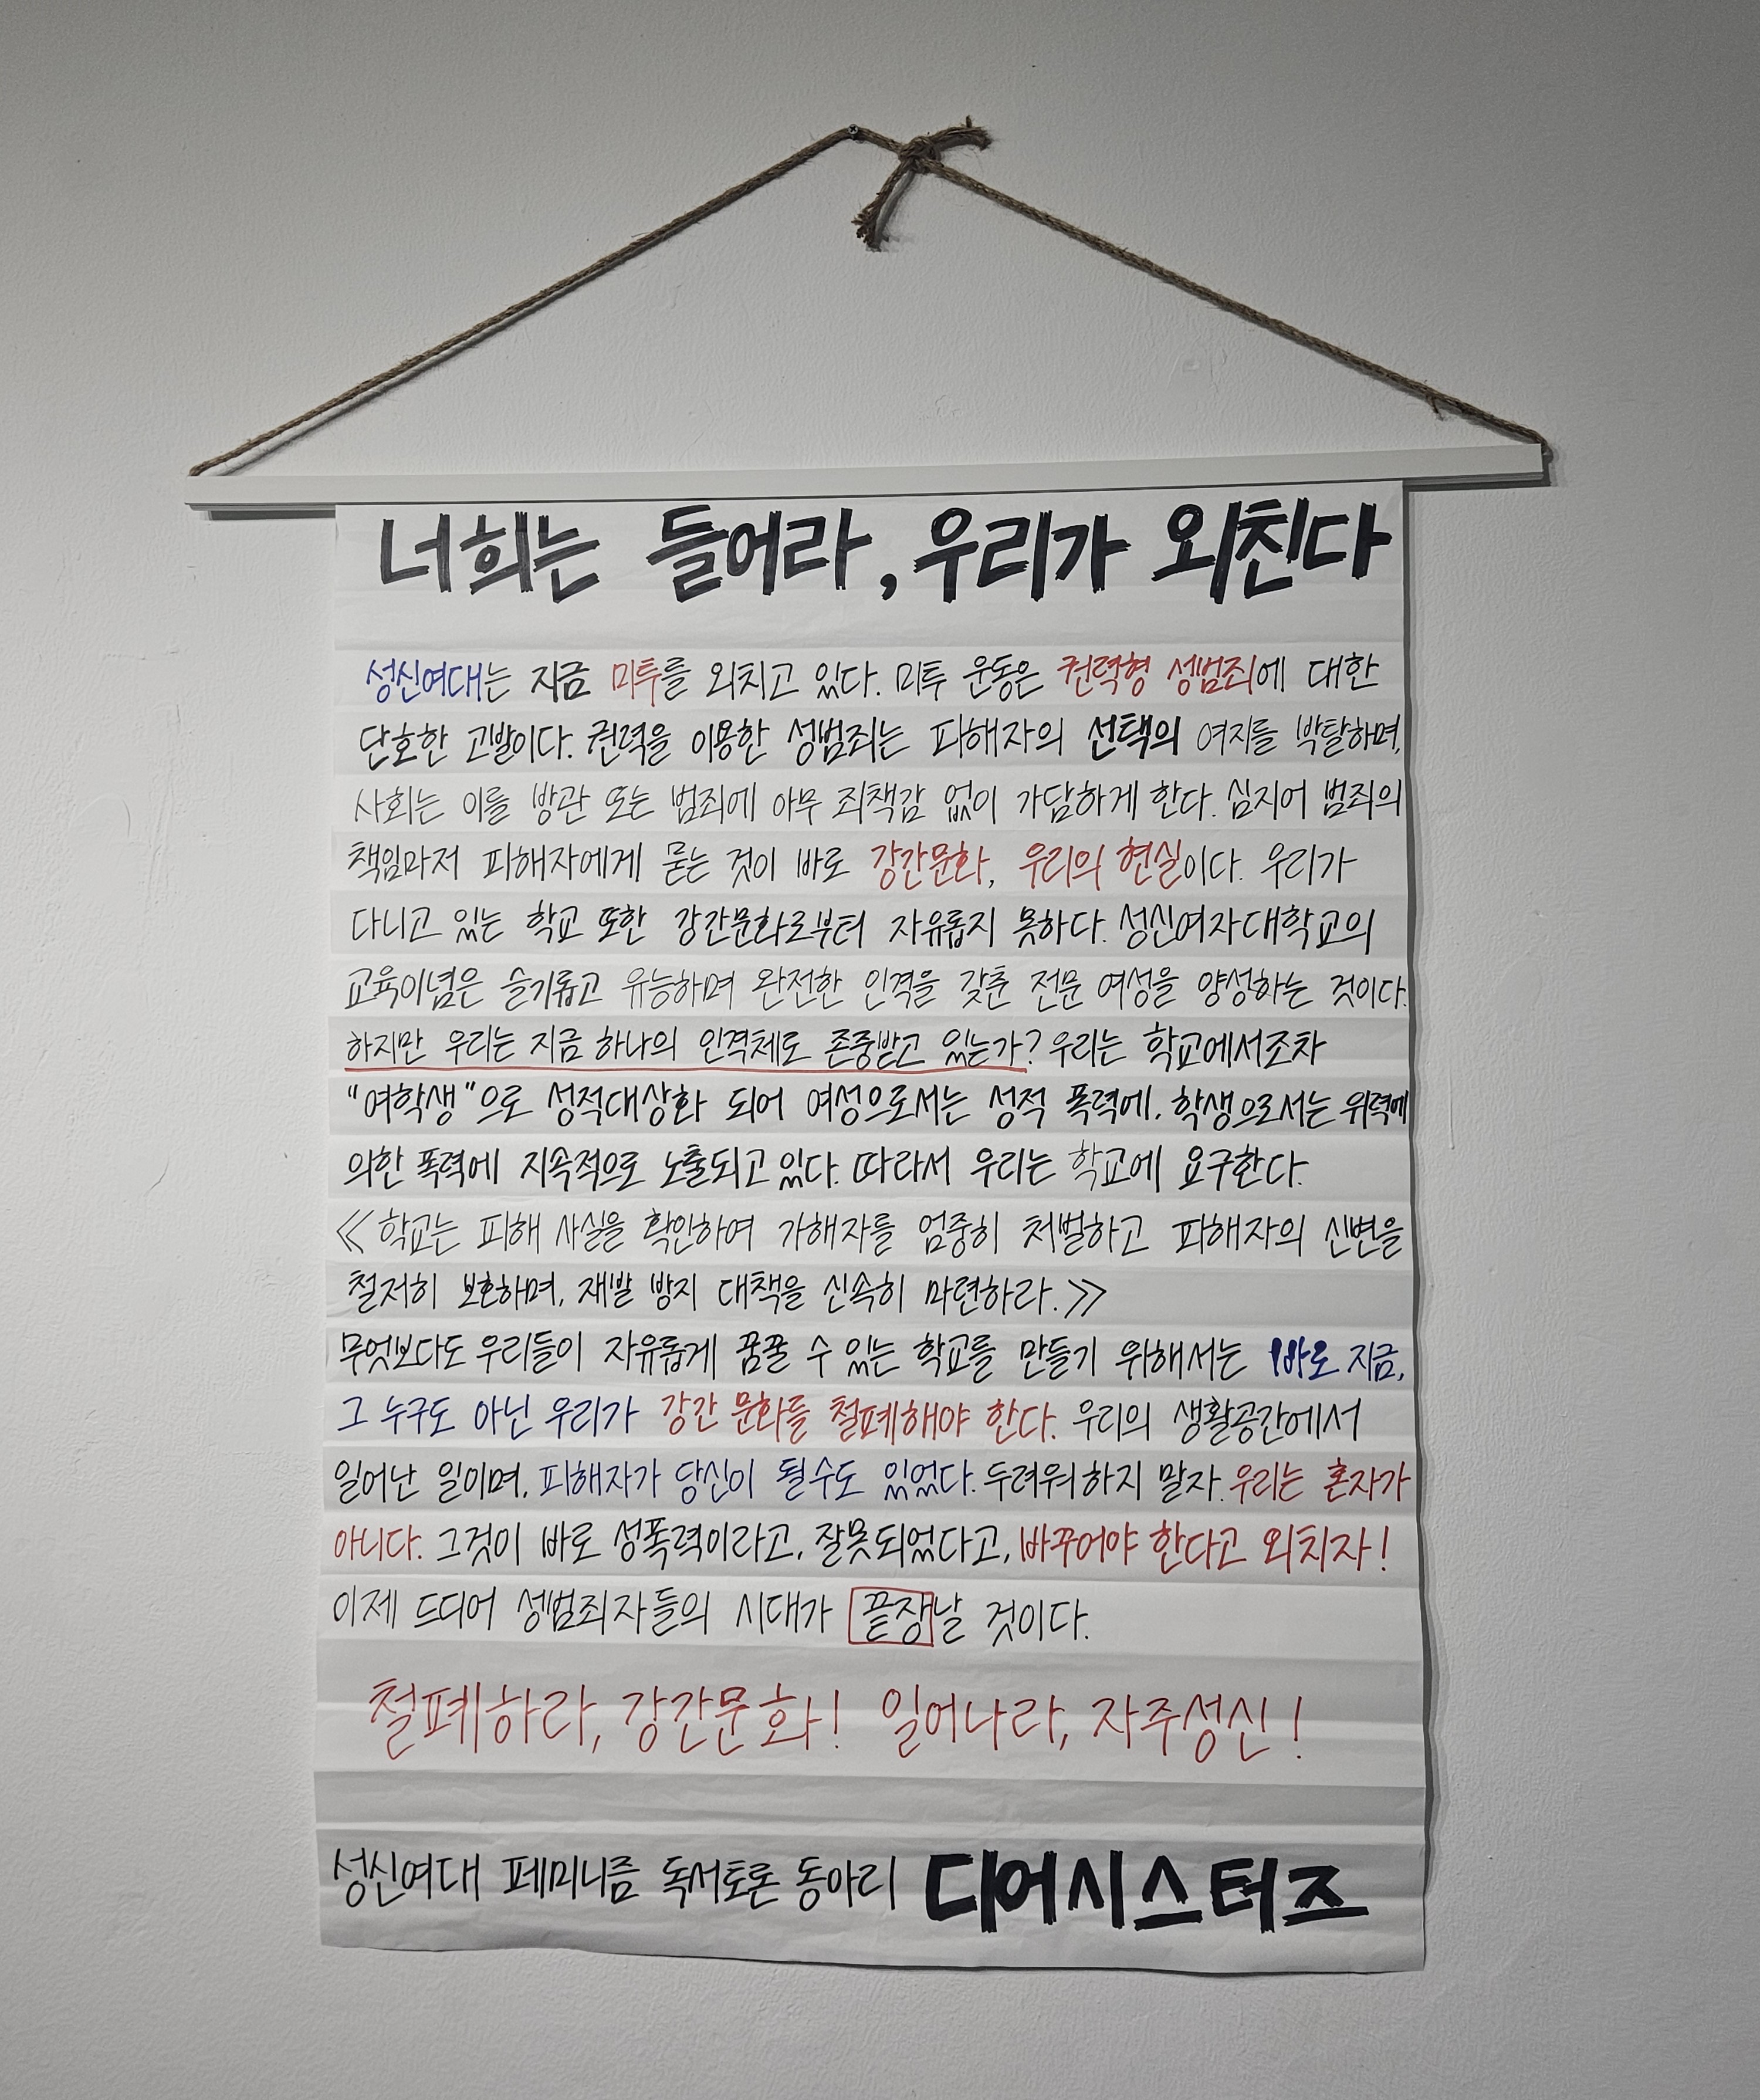 너희는 들어라, 우리가 외친다
성신여대는 지금 미투를 외치고 있다. 미투 운동은 권력형 성범죄에 대한
단호한 고발이다. 권력을 이용한 성범죄는 피해자의 선택의 여지를 박탈하며,
사회는 이를 방관 또는 범죄에 아무 죄책감 없이 가담하게 한다. 심지어 범죄의
책임마저 피해자에게 묻는 것이 바로 강간문화, 우리의 현실이다. 우리가
다니고 있는 학교 또한 강간문화로부터 자유롭지 못하다. 성신여자대학교의
교육이념은 슬기롭고 유능하며 완전한 인격을 갖춘 전문 여성을 양성하는 것이다.
하지만 우리는 지금 하나의 인격체로 존중받고 있는가? 우리는 학교에서조차
"여학생"으로 성적대상화 되어 여성으로서는 성적 폭력에, 학생으로서는 위력에
의한 폭력에 지속적으로 노출되고 있다. 따라서 우리는 학교에 요구한다.
≪학교는 피해 사실을 확인하여 가해자를 엄중히 처벌하고 피해자의 신변을
철저히 보호하며, 재발 방지 대책을 신속히 마련하라.≫
무엇보다도 우리들이 자유롭게 꿈꿀 수 있는 학교를 만들기 위해서는 바로 지금,
그 누구도 아닌 우리가 강간 문화를 철폐해야 한다. 우리의 생활공간에서
일어난 일이며, 피해자가 당신이 될수도 있었다. 두려워하지 말자. 우리는 혼자가
아니다. 그것이 바로 성폭력이라고, 잘못되었다고, 바꾸어야 한다고 외치자!
이제 드디어 성범죄자들의 시대가 끝장날 것이다.
철폐하라, 강간문화! 일어나라, 자주성신!
성신여대 페미니즘 독서토론 동아리 디어시스터즈